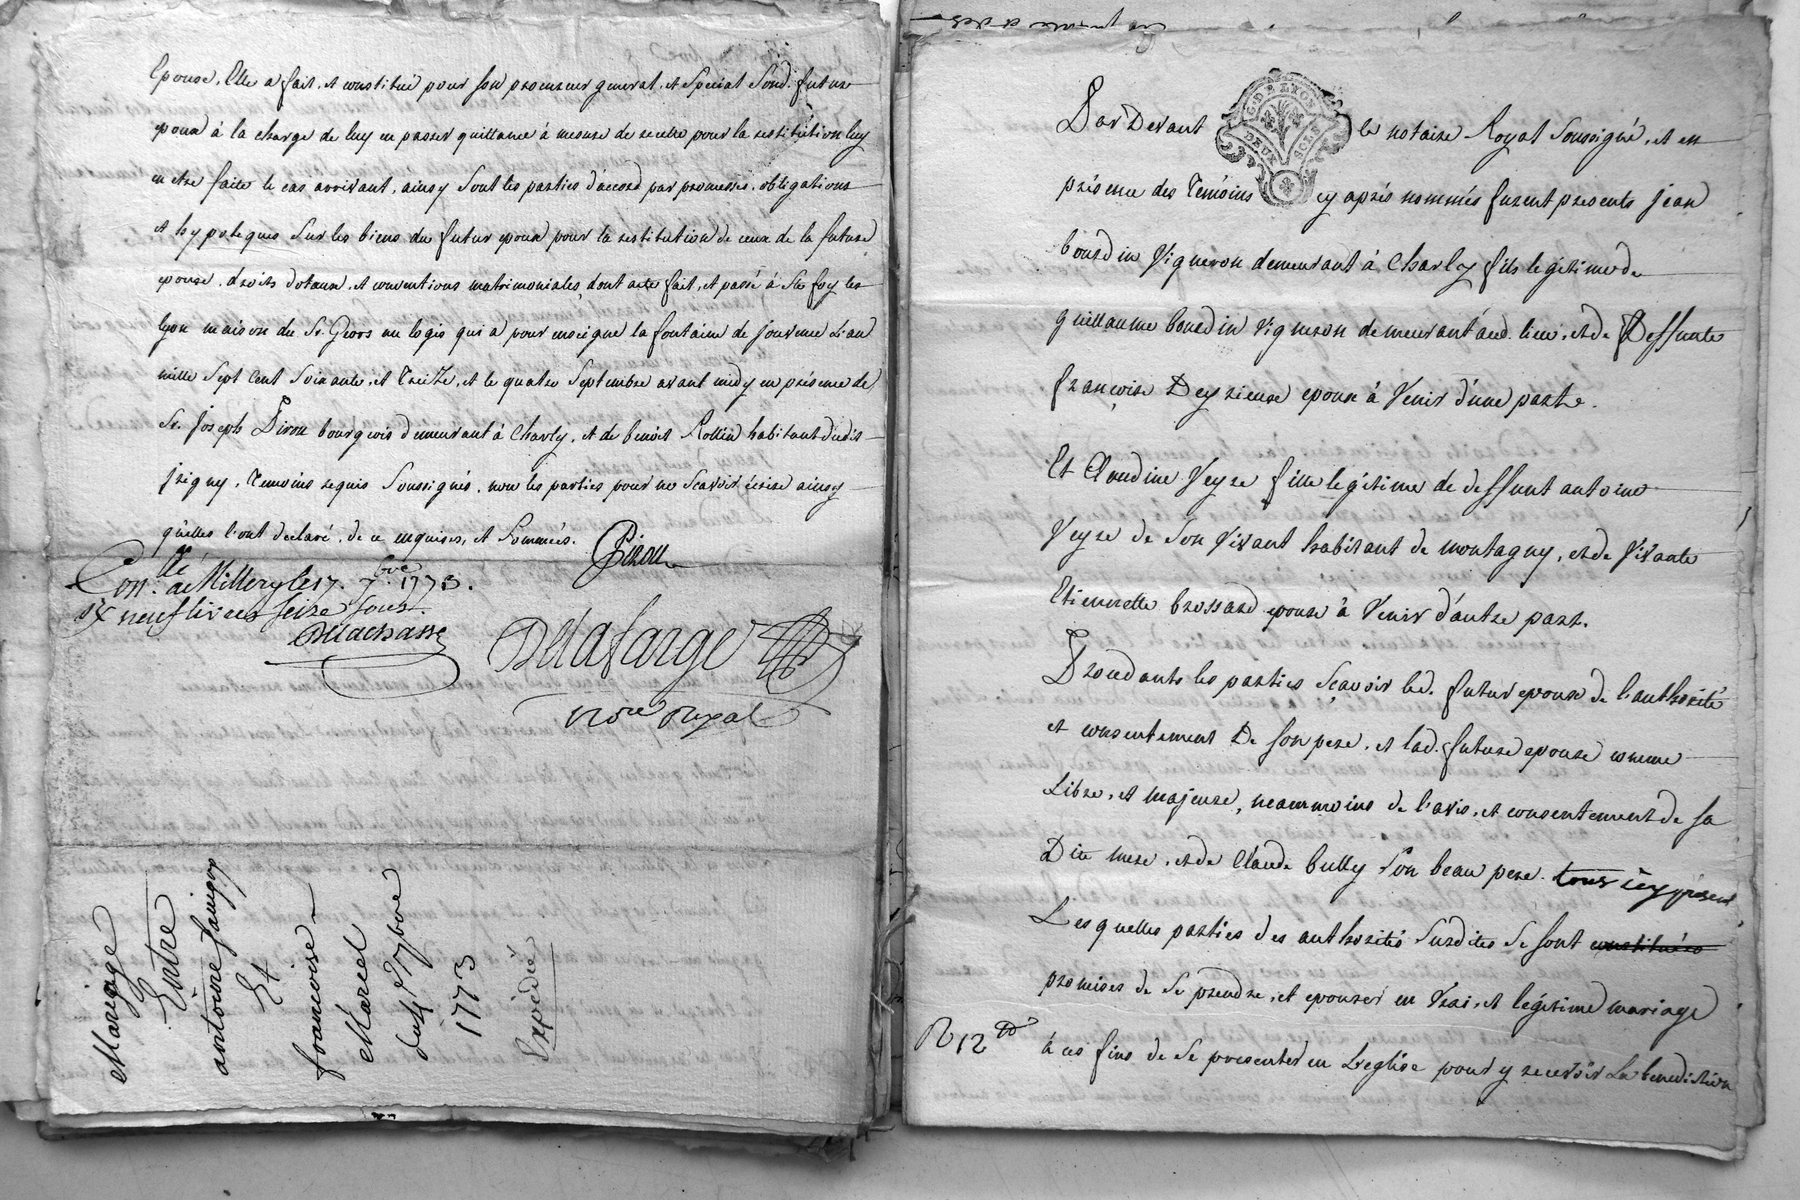 Epouse, Elle a fait, et constitué pour son procureur general, et special Sond. futur
epoux à la charge de luy en passer quittance à mesure de recette pour la restitution luy
en etre faite le cas arrivant, ainsy Sont les parties d'accord par promesses, obligations
et hypoteques Sur les biens du futur epoux pour la restitution de ceux de la future
epouse, droits dotaux, et conventions matrimoniales, dont acte fait, et passé à Ste foy les
lyon maison du Sr. Geors au logis qui a pour enseigne la fontaine de jouvence L'an
mille Sept Cent Soixante, et Treize, et le quatre Septembre avant midy en présence de
Sr. joseph Piron bourgeois demeurant à Charly, et de benoit Rollin habitant dudit
jrigny, Temoins requis Soussignés, non les parties pour ne Scavoir écrire ainsy
qu'elles l'ont declaré, de ce enquises, et Sommées.
Piron
Con.llé à Millery le 17. 7bre 1773.
neuf livres seize sous
Delachasse
Delafarge
Nore Royal
Mariage
Entre
antoine
Et
francoise
Marcel
du 4e 7bre
1773
Expédié
G. DE LYON
DEUX SOLS
Par Devant le notaire Royal Soussigné, et en
présence des Temoins cy après nommés furent presents jean
bourdin Vigneron demeurant à Charly fils legitime de
guillaume bourdin vigneron demeurant aud. lieu, et de Deffunte
françoise Deyrieuse epoux à Venir d'une parte.
Et Claudine Veyre fille legitime de deffunt antoine
Veyre de Son Vivant habitant de montagny, et de Vivante
Etiennette brossard epouse à Venir d'autre part.
Procedants les parties Sçavoir led. futur epoux de l'authorité
et consentement De son pere, et lad. future epouse comme
Libre, et majeure, neanmoins de l'avis, et consentement de sa
Dite mere, et de Claude bully Son beau pere. tous icy présent
Lesquelles parties des authorités Susdites Se sont constituées
promises de Se prendre, et epouser en Vrai, et legitime mariage
R 12
à ces fins de Se presenter en L'eglise pour y recevoir La benediction